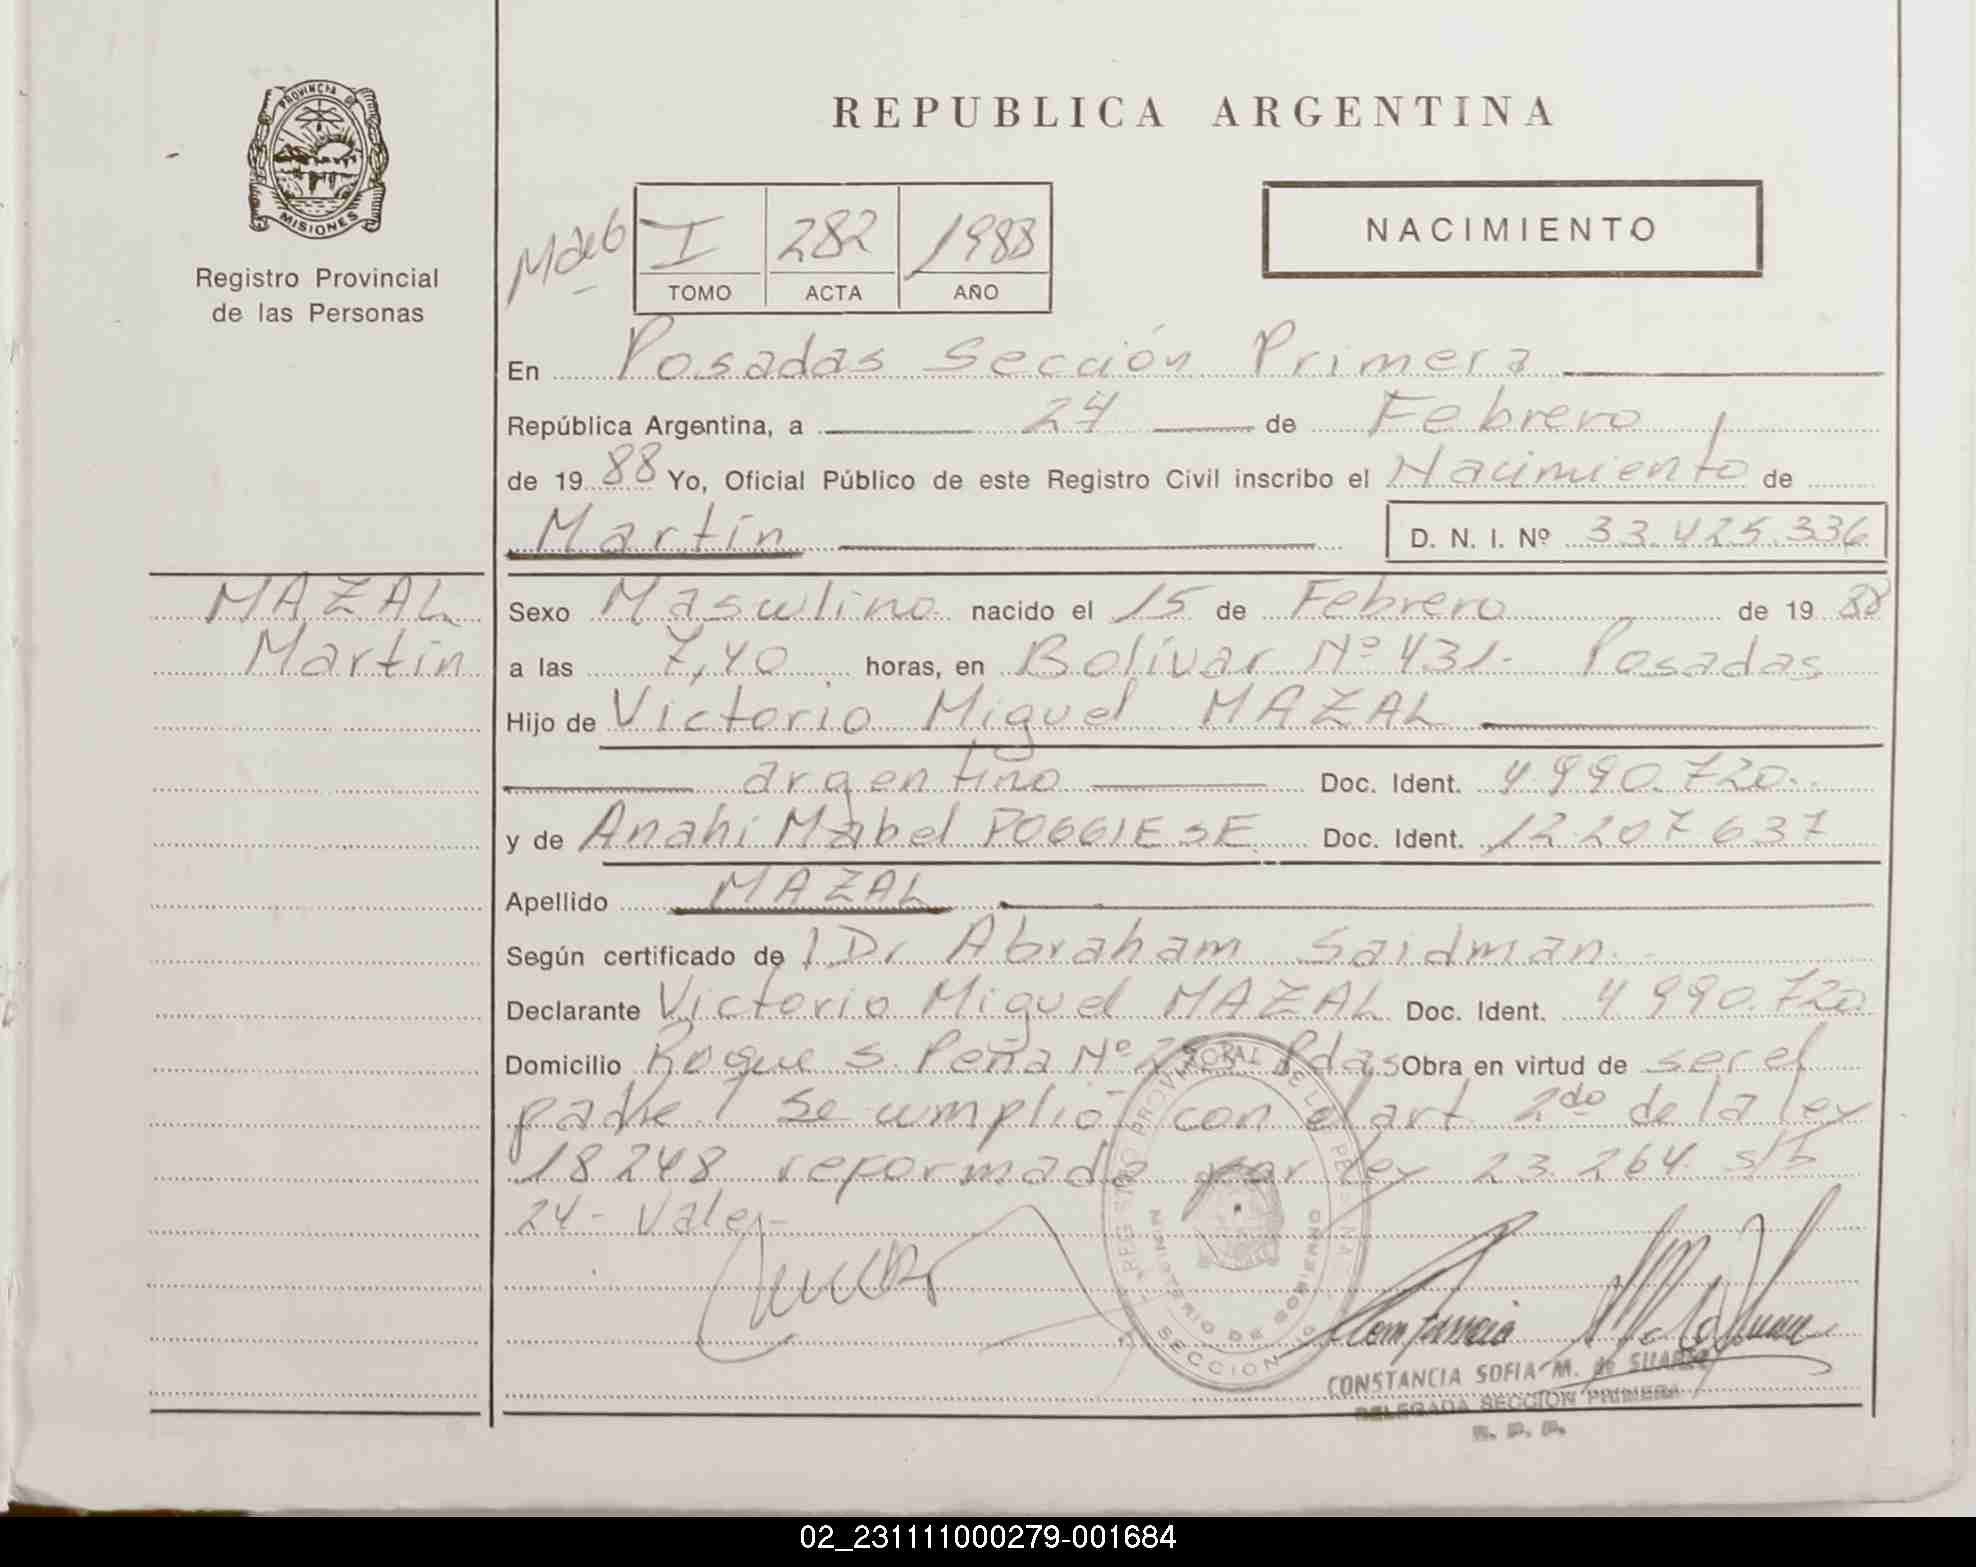 PROVINCIA DE
MISIONES
Registro Provincial
de las Personas
REPUBLICA ARGENTINA
I 282 1988
TOMO ACTA AÑO
NACIMIENTO
En Posadas Sección Primera
República Argentina, a 24 de Febrero
de 19 88 Yo, Oficial Público de este Registro Civil inscribo el Nacimiento de
Martín D. N. I. Nº 33.425.336
MAZAL
Martín
Sexo Masculino nacido el 15 de Febrero de 19 88
a las 7,40 horas, en Bolívar Nº 431- Posadas
Hijo de Victorio Miguel MAZAL
argentino Doc. Ident. 4.990.720.
y de Anahí Mabel POGGIESE Doc. Ident. 12.207.637
Apellido MAZAL
Según certificado de Dr Abraham Saidman.
Declarante Victorio Miguel MAZAL Doc. Ident. 4.990.720
Domicilio Roque S. Peña Nº Pdas Obra en virtud de ser el
padre / Se cumplió con el art 2do de la ley
18248 reformada por ley 23.264. s/b
24- Vale-
REGISTRO PROVINCIAL DE LAS PERSONAS
MINISTERIO DE GOBIERNO
SECCION
CONSTANCIA SOFIA M. de SUAREZ
DELEGADA SECCION PRIMERA
R. P. P.
02_231111000279-001684